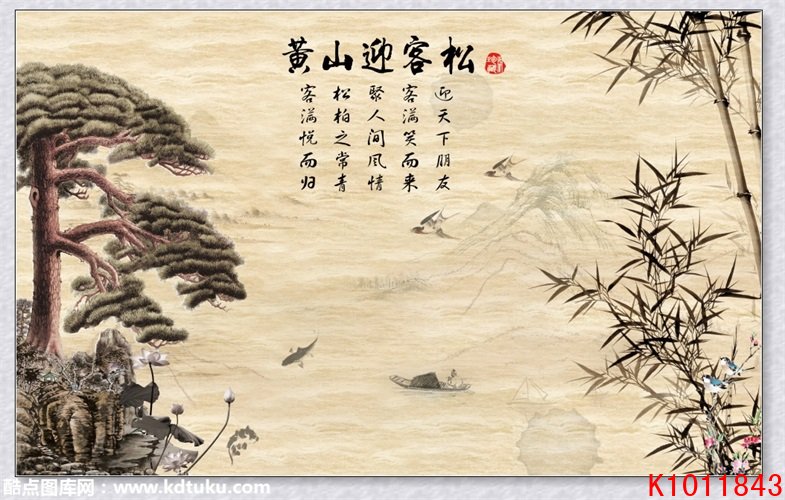 黄山迎客松
迎天下朋友
客满笑而来
聚人间风情
松柏之常青
客满悦而归
酷点图库网：www.kdtuku.com
K1011843